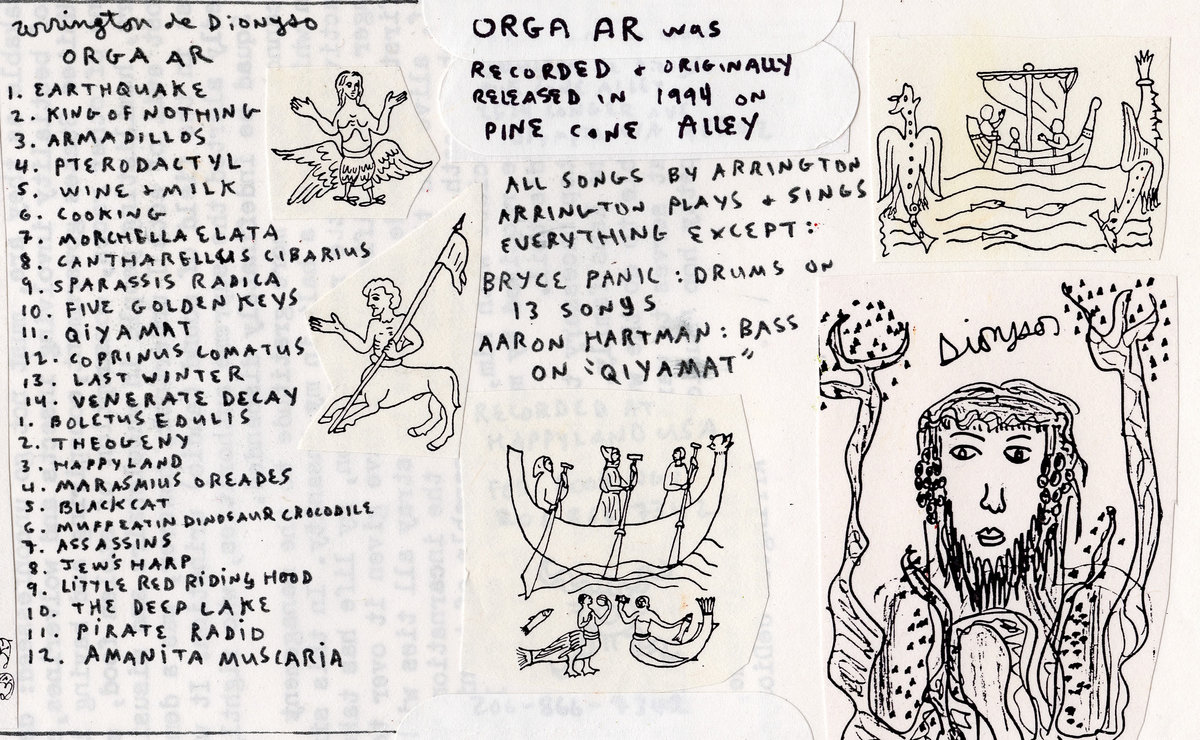 arrington de Dionyso
ORGA AR
1. EARTHQUAKE
2. KING OF NOTHING
3. ARMADILLOS
4. PTERODACTYL
5. WINE + MILK
6. COOKING
7. MORCHELLA ELATA
8. CANTHARELLUS CIBARIUS
9. SPARASSIS RADICA
10. FIVE GOLDEN KEYS
11. QIYAMAT
12. COPRINUS COMATUS
13. LAST WINTER
14. VENERATE DECAY
1. BOLETUS EDULIS
2. THEOGENY
3. HAPPYLAND
4. MARASMIUS OREADES
5. BLACKCAT
6. MUFFEATIN DINOSAUR CROCODILE
7. ASSASSINS
8. JEW'S HARP
9. LITTLE RED RIDING HOOD
10. THE DEEP LAKE
11. PIRATE RADIO
12. AMANITA MUSCARIA
ORGA AR was
RECORDED + ORIGINALLY
RELEASED IN 1994 ON
PINE CONE ALLEY
ALL SONGS BY ARRINGTON
ARRINGTON PLAYS + SINGS
EVERYTHING EXCEPT:
BRYCE PANIC: DRUMS ON
13 SONGS
AARON HARTMAN: BASS
ON "QIYAMAT"
Dionyson